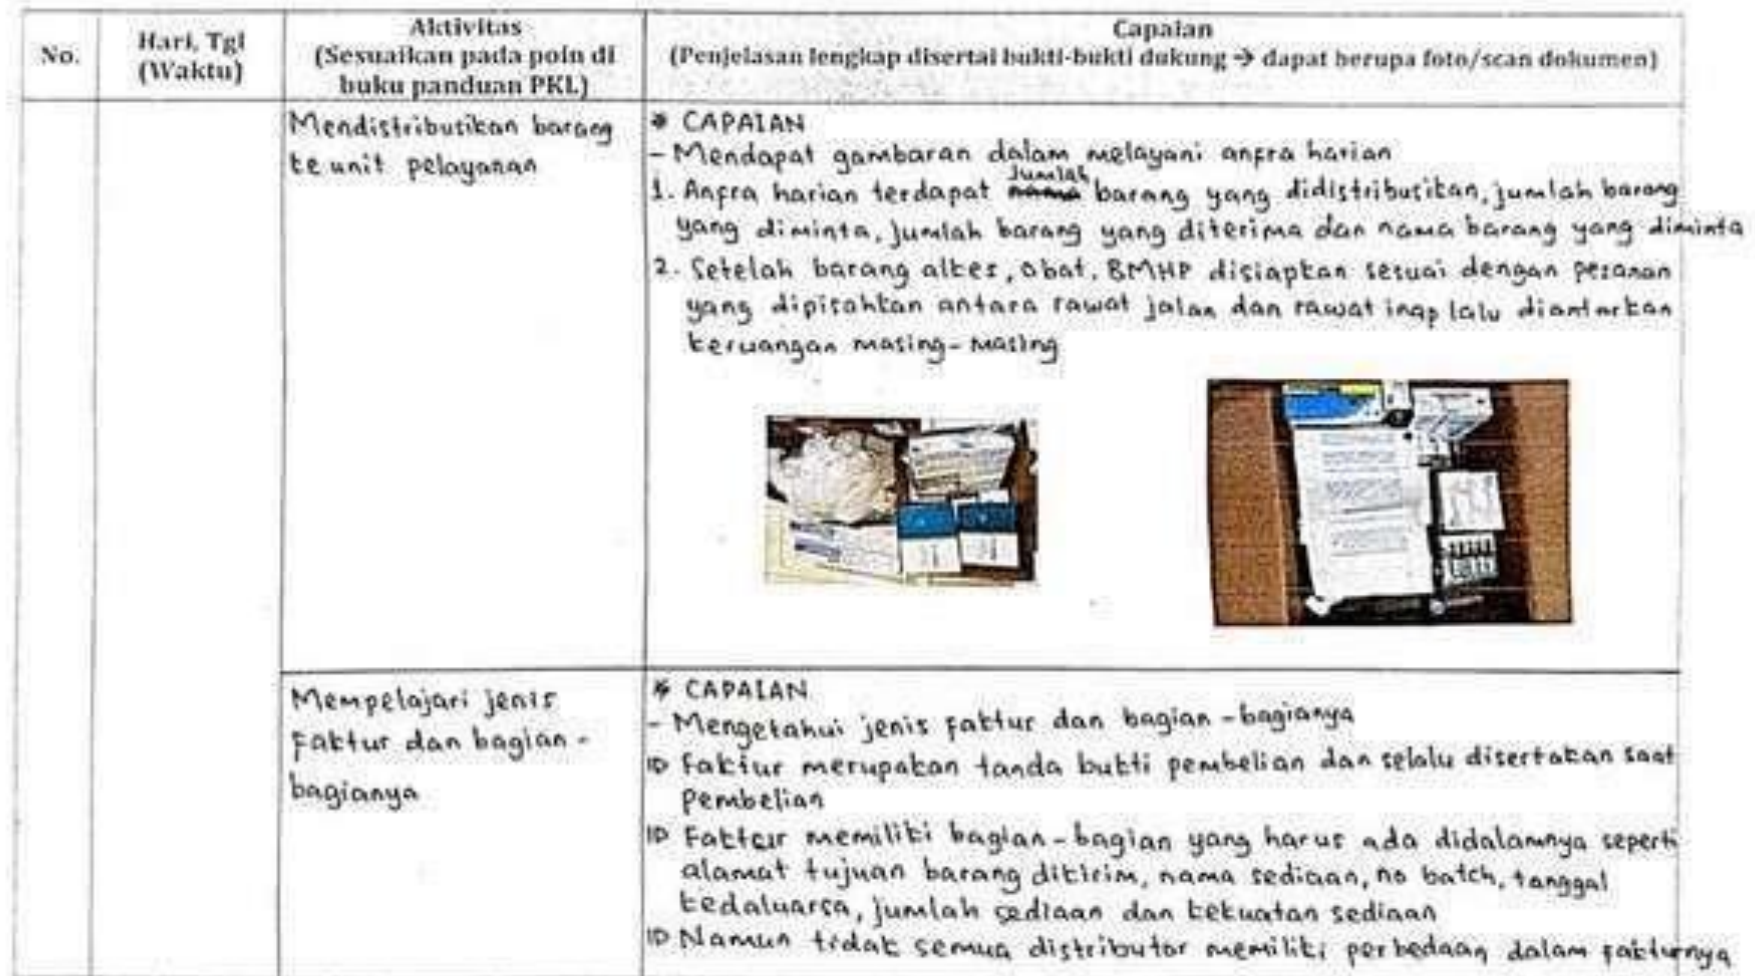 No.
Hari, Tgl
(Waktu)
Aktivitas
(Sesuaikan pada poin di
buku panduan PKL)
Capaian
(Penjelasan lengkap disertai bukti-bukti dukung → dapat berupa foto/scan dokumen)
Mendistribusikan barang
ke unit pelayanan
* CAPAIAN
- Mendapat gambaran dalam melayani anfra harian
1. Anfra harian terdapat jumlah barang yang didistribusikan, jumlah barang
yang diminta, jumlah barang yang diterima dan nama barang yang diminta
2. Setelah barang alkes, obat, BMHP disiapkan sesuai dengan pesanan
yang dipisahkan antara rawat jalan dan rawat inap lalu diantarkan
keruangan masing-masing
Mempelajari jenis
faktur dan bagian-
bagianya
* CAPAIAN
- Mengetahui jenis faktur dan bagian-bagianya
Faktur merupakan tanda bukti pembelian dan selalu disertakan saat
pembelian
Faktur memiliki bagian-bagian yang harus ada didalamnya seperti
alamat tujuan barang dikirim, nama sediaan, no batch, tanggal
kedaluarsa, jumlah sediaan dan kekuatan sediaan
Namun tidak semua distributor memiliki perbedaan dalam fakturnya